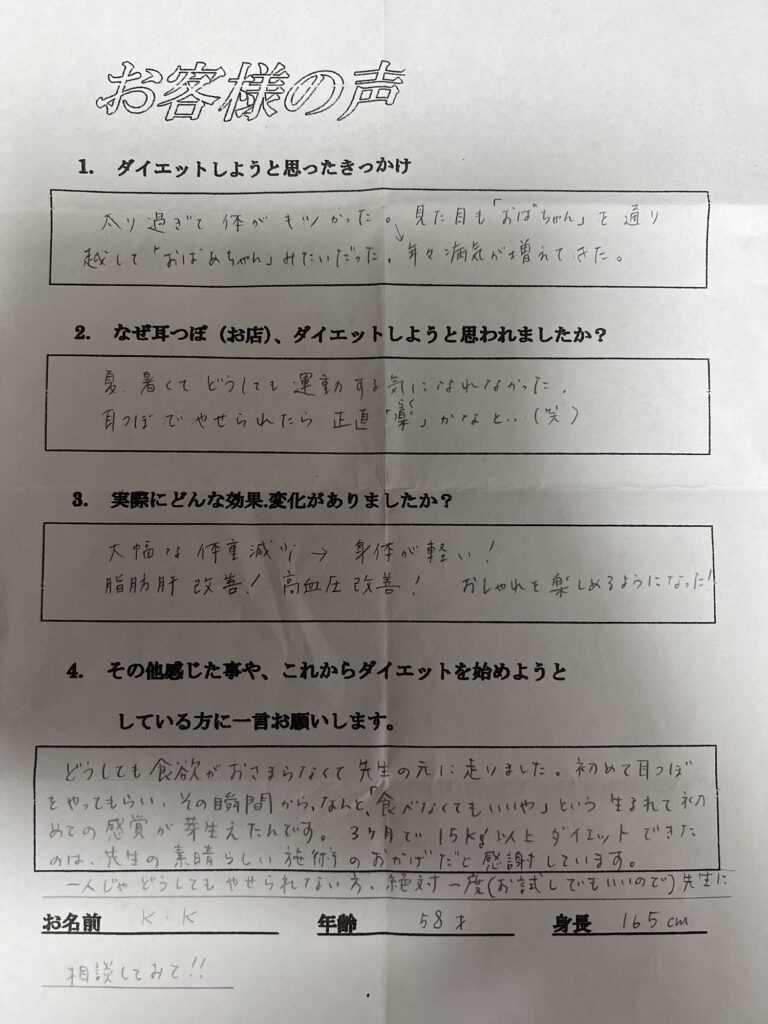 お客様の声
1. ダイエットしようと思ったきっかけ
太り過ぎて体がキツかった。見た目も「おばちゃん」を通り
越して「おばあちゃん」みたいだった。年々病気が増えてきた。
2. なぜ耳つぼ（お店）、ダイエットしようと思われましたか？
夏、暑くてどうしても運動する気になれなかった。
耳つぼでやせられたら正直「楽」かなと‥(笑)
らく
3. 実際にどんな効果.変化がありましたか？
大幅な体重減少→身体が軽い！
脂肪肝改善！高血圧改善！おしゃれを楽しめるようになった！
4. その他感じた事や、これからダイエットを始めようと
している方に一言お願いします。
どうしても食欲がおさまらなくて先生の元に走りました。初めて耳つぼ
をやってもらい、その瞬間から、なんと、「食べなくてもいいや」という生まれて初
めての感覚が芽生えたんです。3ヶ月で15kg以上ダイエットできた
のは、先生の素晴らしい施術のおかげだと感謝しています。
一人じゃどうしてもやせられない方、絶対一度(お試しでもいいので)先生に
お名前 K・K 年齢 58才 身長 165cm
相談してみて!!